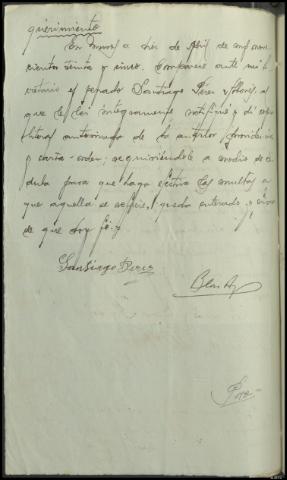 querimiento
En          a tres de Abril de mil nove
cientos treinta y cinco. Comparece ante mi el Se
cretario el penado Santiago Pérez               al
que le leí íntegramente notifiqué y dí copia
literal autorizada de la anterior providencia
y carta-orden; requiriéndole a medio de cé
dula para que haga efectiva las multas a
que aquella se refiere, quedó enterado, y firma
de que doy fé.
Santiago Perez